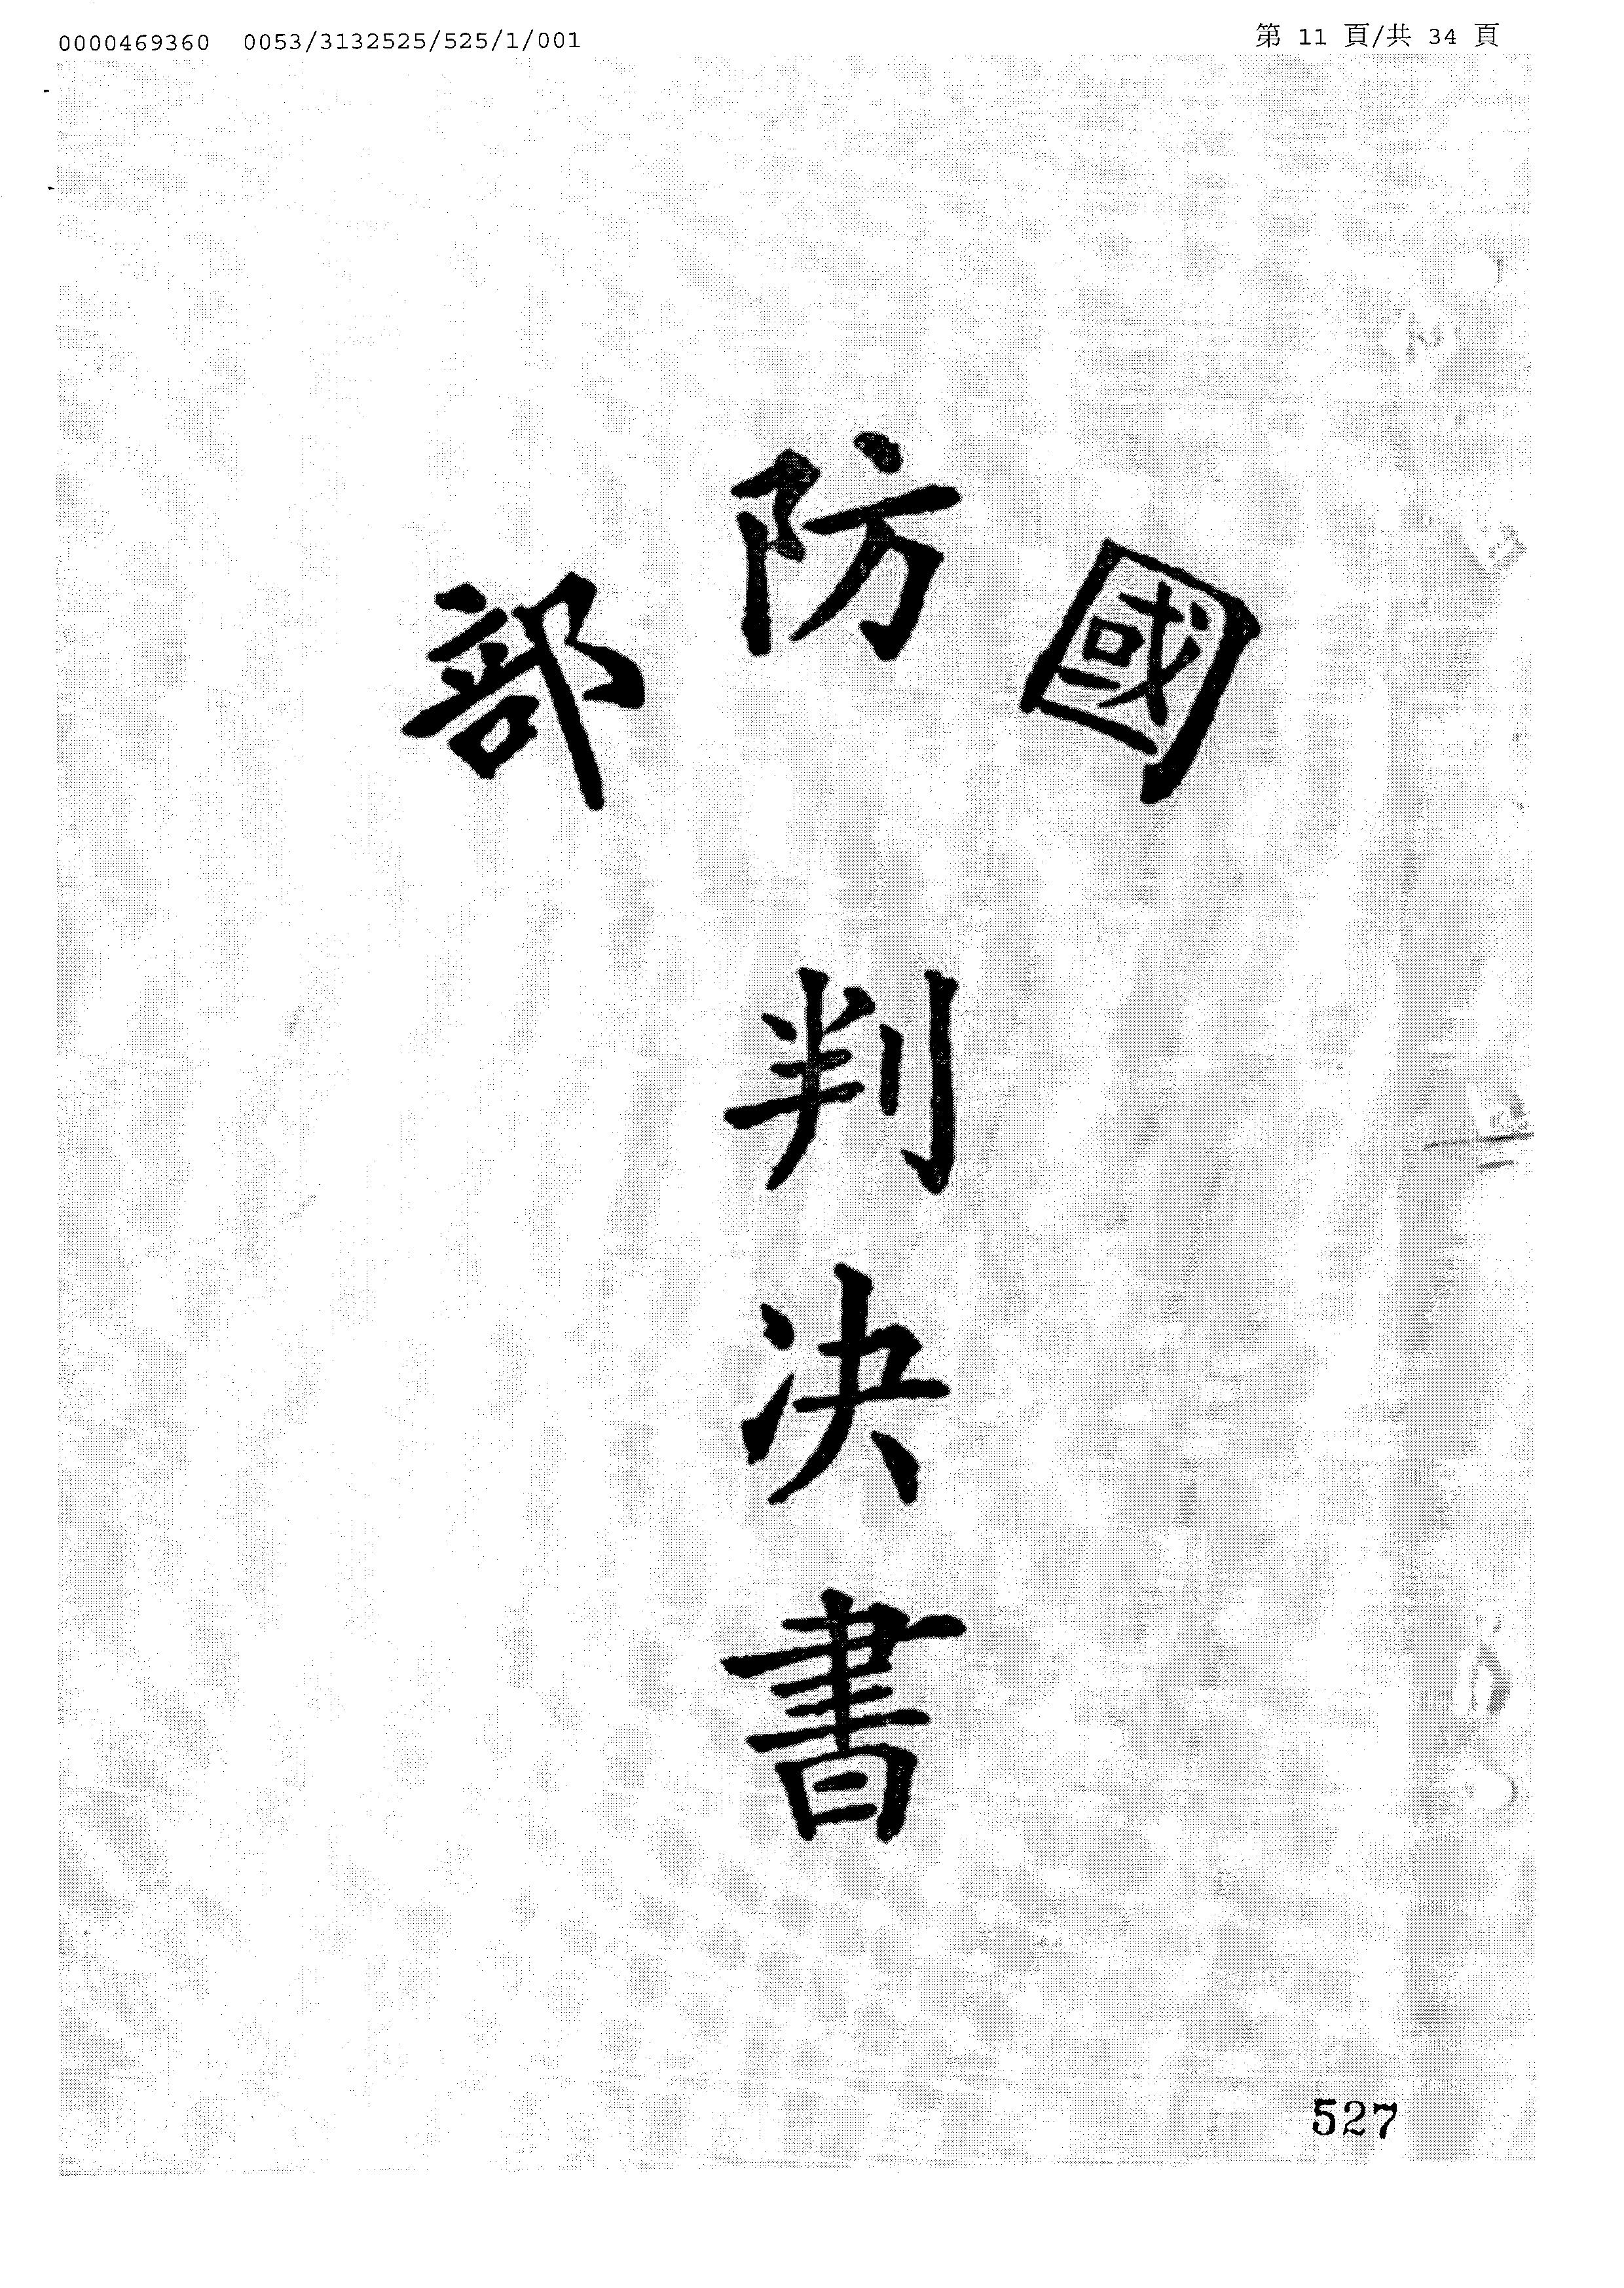 0000469360 0053/3132525/525/1/001
第 11 頁/共 34 頁
國防部
判決書
527